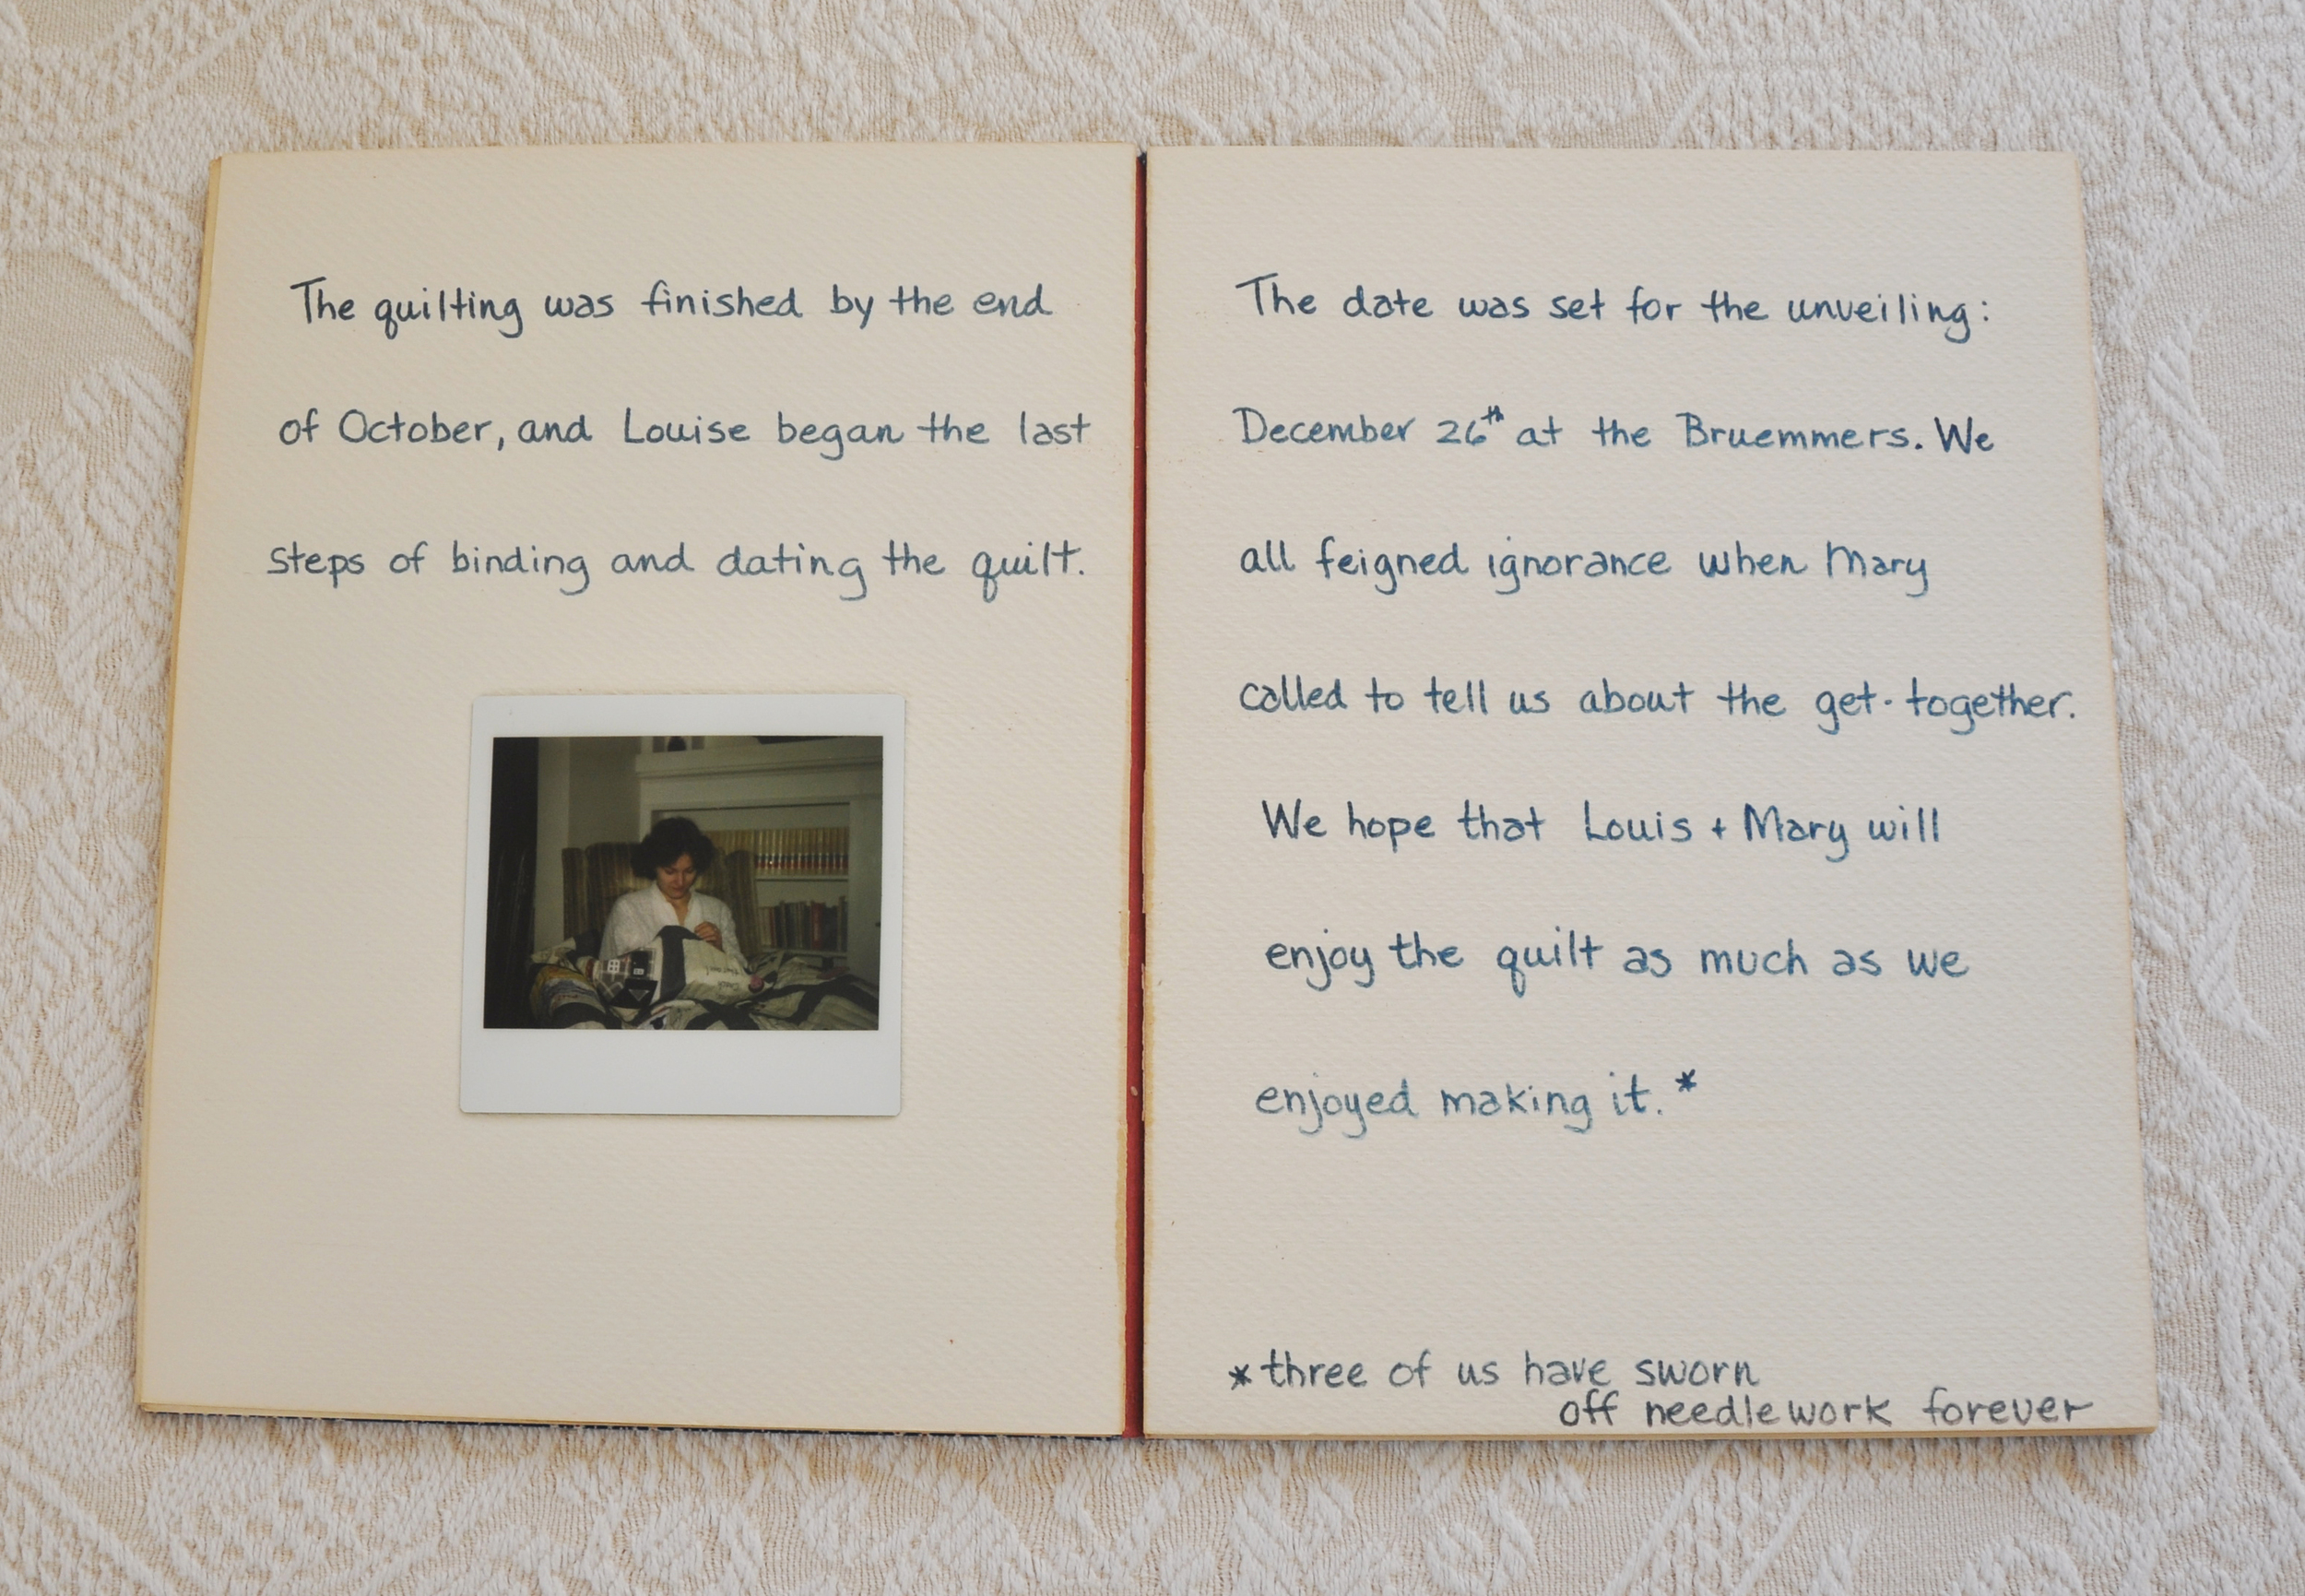 The quilting was finished by the end
of October, and Louise began the last
steps of binding and dating the quilt.
The date was set for the unveiling:
December 26th at the Bruemmers. We
all feigned ignorance when Mary
called to tell us about the get-together.
We hope that Louis + Mary will
enjoy the quilt as much as we
enjoyed making it.*
*three of us have sworn
off needlework forever